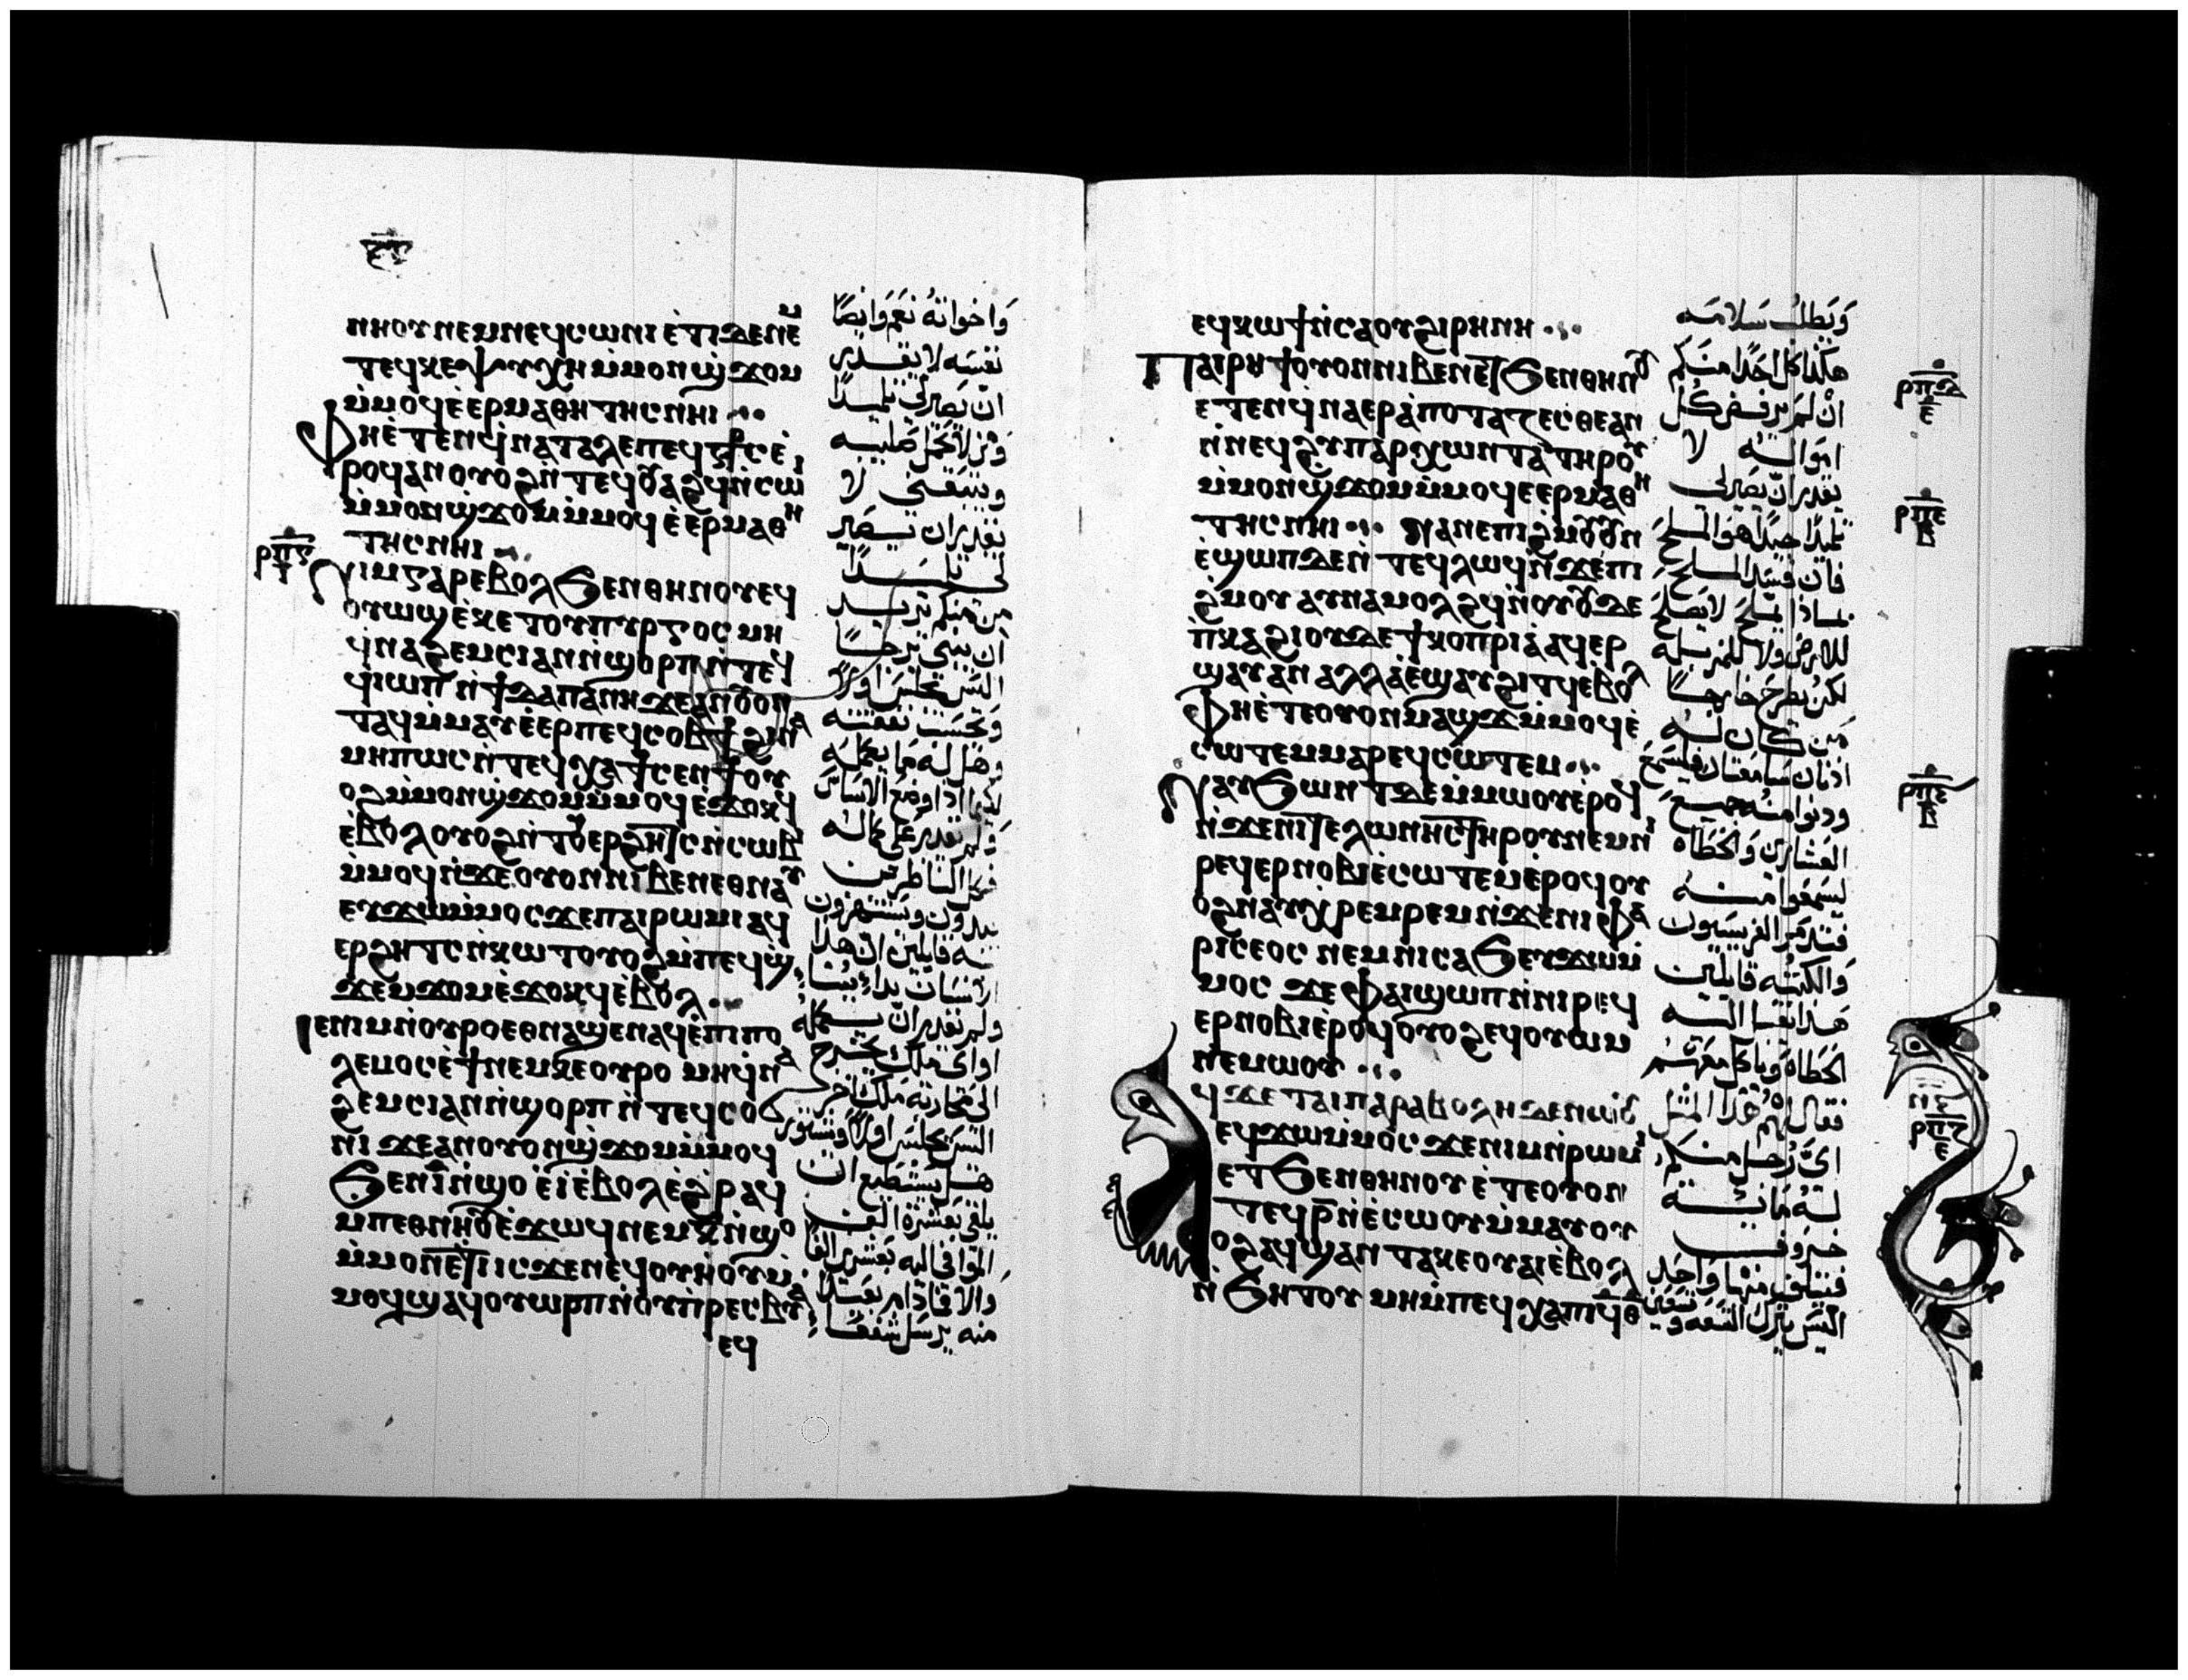 ⲛⲏⲟⲩ ⲛⲉⲙ ⲛⲉϥⲥⲱⲛⲓ ⲉ̀ⲧⲓ ⲇⲉ ⲛⲉⲙ
ⲧⲉϥⲕⲉⲯⲩⲭⲏ ⲙ̀ⲙⲟⲛ ϣ̀ϫⲟⲙ
ⲙ̀ⲙⲟϥ ⲉ̀ⲉⲣⲙⲁⲑⲏⲧⲏⲥ ⲛⲏⲓ
ⲫⲏ ⲉ̀ⲧⲉⲛϥ̀ⲛⲁⲧⲁⲗⲉ ⲡⲉϥⲥ̅ⳁⲥ ⲉ̀
ⲣⲟϥ ⲁⲛ ⲟⲩⲟϩ ⲛ̀ⲧⲉϥⲟⲩⲁϩϥ ⲛ̀ⲥⲱⲓ
ⲙ̀ⲙⲟⲛ ϣ̀ϫⲟⲙ ⲙ̀ⲙⲟϥ ⲉ̀ⲉⲣⲙⲁⲑⲏ
ⲧⲏⲥ ⲛⲏⲓ
ⲣⲡⲋ
ⲛⲓⲙ ⲅⲁⲣ ⲉⲃⲟⲗ ϧⲉⲛ ⲑⲏⲛⲟⲩ ⲉϥ
ⲟⲩⲱϣ ⲉ̀ⲕⲉⲧ ⲟⲩⲡⲩⲣⲅⲟⲥ ⲙⲏ
ϥ̀ⲛⲁϩⲉⲙⲥⲓ ⲁⲛ ⲛ̀ϣⲟⲣⲡ ⲛ̀ⲧⲉϥ
ϥⲓ ⲱⲡ ⲛ̀ϯⲇⲁⲡⲁⲛⲏ ϫⲉ ⲁⲛ ⲟⲩⲟⲛ
ⲧⲁϥ ⲙ̀ⲙⲁⲩ ⲉ̀ⲉⲣⲡⲉϥⲥⲟⲃϯ ϩⲓⲛⲁ
ⲙⲏⲡⲱⲥ ⲛ̀ⲧⲉϥⲭⲁ ϯⲥⲉⲛϯ ⲟⲩ
ⲟϩ ⲙ̀ⲙⲟⲛ ϣ̀ϫⲟⲙ ⲙ̀ⲙⲟϥ ⲉ̀ϫⲟⲕϥ
ⲉ̀ⲃⲟⲗ ⲟⲩⲟϩ ⲛ̀ⲧⲟⲩⲉⲣϩⲏⲧⲥ ⲛ̀ⲥⲱⲃⲓ
ⲙ̀ⲙⲟϥ ⲛ̀ϫⲉ ⲟⲩⲟⲛ ⲛⲓⲃⲉⲛ ⲉⲑⲛⲁⲩ
ⲉⲩϫⲱ ⲙ̀ⲙⲟⲥ ϫⲉ ⲡⲁⲓⲣⲱⲙⲓ ⲁϥ
ⲉⲣϩⲏⲧⲥ ⲛ̀ⲕⲱⲧ ⲟⲩⲟϩ ⲙ̀ⲡⲉϥϣ̀
ϫⲉⲙϫⲟⲙ ⲉ̀ϫⲟⲕϥ ⲉ̀ⲃⲟⲗ
ⲓⲉ ⲛⲓⲙ ⲛ̀ⲟⲩⲣⲟ ⲉⲑⲛⲁϣⲉⲛⲁϥ ⲉ̀ⲡⲓⲡⲟ
ⲗⲉⲙⲟⲥ ⲉ̀ϯ ⲛⲉⲙ ⲕⲉⲟⲩⲣⲟ ⲙⲏ ϥ̀ⲛⲁ
ϩⲉⲙⲥⲓ ⲁⲛ ⲛ̀ϣⲟⲣⲡ ⲛ̀ⲧⲉϥⲥⲟϭ
ⲛⲓ ϫⲉ ⲁⲛ ⲟⲩⲟⲛ ϣ̀ϫⲟⲙ ⲙ̀ⲙⲟϥ
ϧⲉⲛ ⲓ̅ ⲛ̀ϣⲟ ⲉ̀ⲓ ⲉ̀ⲃⲟⲗ ⲉ̀ϩⲣⲁϥ
ⲙ̀ⲡⲉⲑⲛⲏⲟⲩ ⲉ̀ϫⲱϥ ⲛⲉⲙ ⲕ̅ ⲛ̀ϣⲟ
ⲙ̀ⲙⲟⲛ ⲉⲧⲓ ⲓⲥϫⲉⲛ ⲉϥⲟⲩⲏⲟⲩ ⲙ̀
ⲙⲟϥ ϣⲁϥⲟⲩⲱⲣⲡ ⲛ̀ⲟⲩⲡ̀ⲣⲉⲥⲃⲓⲁ
ⲉϥ
واخواته نعم وايضا
نفسه لا يقدر
ان يصير لي تلميدا
ومن لا يحمل صليبه
ويتبعني لا
يقدر ان يصير
لي تلميدا
من منكم يريد
ان يبني برجا
اليس يجلس اولا
ويحسب نفقته
وهل له ما يكمله
ليلا اذا وضع الاساس
ولم يقدر على كماله
فكل الناظرين
يبدون ويستهزون
به قايلين ان هذا
الانسان بدا يبنا
ولم يقدر ان يكمله
او اي ملك يخرج
الى محاربة ملك اخر
اليس يجلس اولا ويتشور
هل يستطيع ان
يلقى بعشرة الف
الموافي اليه بعشرين الفا
والا فما دام بعيدا
منه يرسل شفعا
ⲉϥⲕⲱϯ ⲛ̀ⲥⲁ ⲟⲩϩⲓⲣⲏⲛⲏ
ⲡⲁⲓⲣⲏϯ ⲟⲩⲟⲛ ⲛⲓⲃⲉⲛ ⲉⲧϧⲉⲛ ⲑⲏⲛⲟⲩ
ⲉⲧⲉⲛϥ̀ⲛⲁⲉⲣⲁ̀ⲡⲟⲧⲁⲍⲉⲥⲑⲉ ⲁⲛ
ⲛ̀ⲛⲉϥϩⲩⲡⲁⲣⲭⲱⲛⲧⲁ ⲧⲏⲣⲟⲩ
ⲙ̀ⲙⲟⲛ ϣ̀ϫⲟⲙ ⲙ̀ⲙⲟϥ ⲉⲉⲣⲙⲁⲑⲏ
ⲧⲏⲥ ⲛⲏⲓ ⲛⲁⲛⲉ ⲡⲓϩ̀ⲙⲟⲩ ⲟⲩⲛ
ⲉ̀ϣⲱⲡ ⲇⲉ ⲛ̀ⲧⲉϥⲗⲱϥ ⲛ̀ϫⲉ ⲡⲓ
ϩ̀ⲙⲟⲩ ⲁⲩⲛⲁⲙⲟⲗϩϥ ⲛ̀ⲟⲩ ⲟⲩⲇⲉ
ⲡ̀ⲕⲁϩⲓ ⲟⲩⲇⲉ ϯⲕⲟⲡⲣⲓⲁ ⲁϥⲉⲣ
ϣⲁⲩ ⲁⲛ ⲁⲗⲗⲁ ⲉ̀ϣⲁⲩϩⲓⲧϥ ⲉ̀ⲃⲟⲗ
ⲫⲏ ⲉ̀ⲧⲉ ⲟⲩⲟⲛ ⲙⲁϣϫ ⲙ̀ⲙⲟϥ ⲉ̀
ⲥⲱⲧⲉⲙ ⲙⲁⲣⲉϥⲥⲱⲧⲉⲙ
ⲛⲁⲩϧⲱⲛⲧ ⲇⲉ ⲙ̀ⲙⲱⲟⲩ ⲉⲣⲟϥ
ⲛ̀ϫⲉ ⲛⲓⲧⲉⲗⲱⲛⲏⲥ ⲧⲏⲣⲟⲩ ⲛⲉⲙ ⲛⲓ
ⲣⲉϥⲉⲣⲛⲟⲃⲓ ⲉ̀ⲥⲱⲧⲉⲙ ⲉ̀ⲣⲟϥ ⲟⲩ
ⲟϩ ⲛⲁⲩⲭⲣⲉⲙⲣⲉⲙ ⲛ̀ϫⲉ ⲛⲓⲫⲁ
ⲣⲓⲥⲉⲟⲥ ⲛⲉⲙ ⲛⲓⲥⲁϧ ⲉⲩϫⲱ ⲙ̀
ⲙⲟⲥ ϫⲉ ⲫⲁⲓ ϣⲱⲡ ⲛ̀ⲛⲓⲣⲉϥ
ⲉⲣⲛⲟⲃⲓ ⲉ̀ⲣⲟϥ ⲟⲩⲟϩ ⲉϥⲟⲩⲱⲙ
ⲛⲉⲙⲱⲟⲩ
ϥ ϫⲉ ⲧⲁⲓⲡⲁⲣⲁⲃⲟⲗⲏ ⲇⲉ ⲛⲱⲟⲩ
ⲉϥϫⲱ ⲙ̀ⲙⲟⲥ ϫⲉ ⲛⲓⲙ ⲛ̀ⲣⲱⲙⲓ
ⲉⲧϧⲉⲛ ⲑⲏⲛⲟⲩ ⲉ̀ⲧⲉ ⲟⲩⲟⲛ
ⲧⲉϥ ⲣ̅ ⲛ̀ⲉ̀ⲥⲱⲟⲩ ⲙ̀ⲙⲁⲩ ⲟⲩ
ⲟϩ ⲁϥϣⲁⲛⲧⲁⲕⲉ ⲟⲩⲁⲓ ⲉ̀ⲃⲟⲗ
ⲛ̀ϧⲏⲧⲟⲩ ⲙⲏ ⲙ̀ⲡⲉϥⲭⲁ ⲡⲓϥ̅ⲑ̅
ويطلب سلامه
هكذا كل احد منكم
ان لم يرفض كل
امواله لا
يقدر ان يصير لي
تلميدا جيد هو الملح
فان فسد الملح
بماذا يملح لا يصلح
للارض ولا للمزبله
لكن يطرح خارجا
من كان له
اذنان سامعتان فليسمع
ودنوا منه جميع
العشارين والخطاه
ليسمعوا منه
فتذمر الفريسيون
والكتبه قايلين
هذا يقبل اليه
الخطاه وياكل معهم
فقال لهم هذا المثل
اي رجل منكم
له مايه
خروف
فيتلف منها واحد
اليس يترك التسعه وتسعين
ⲣⲡⲇ
ⲉ
ⲣⲡⲉ
ⲣⲡⲋ
ⲣⲡⲍ
ⲉ